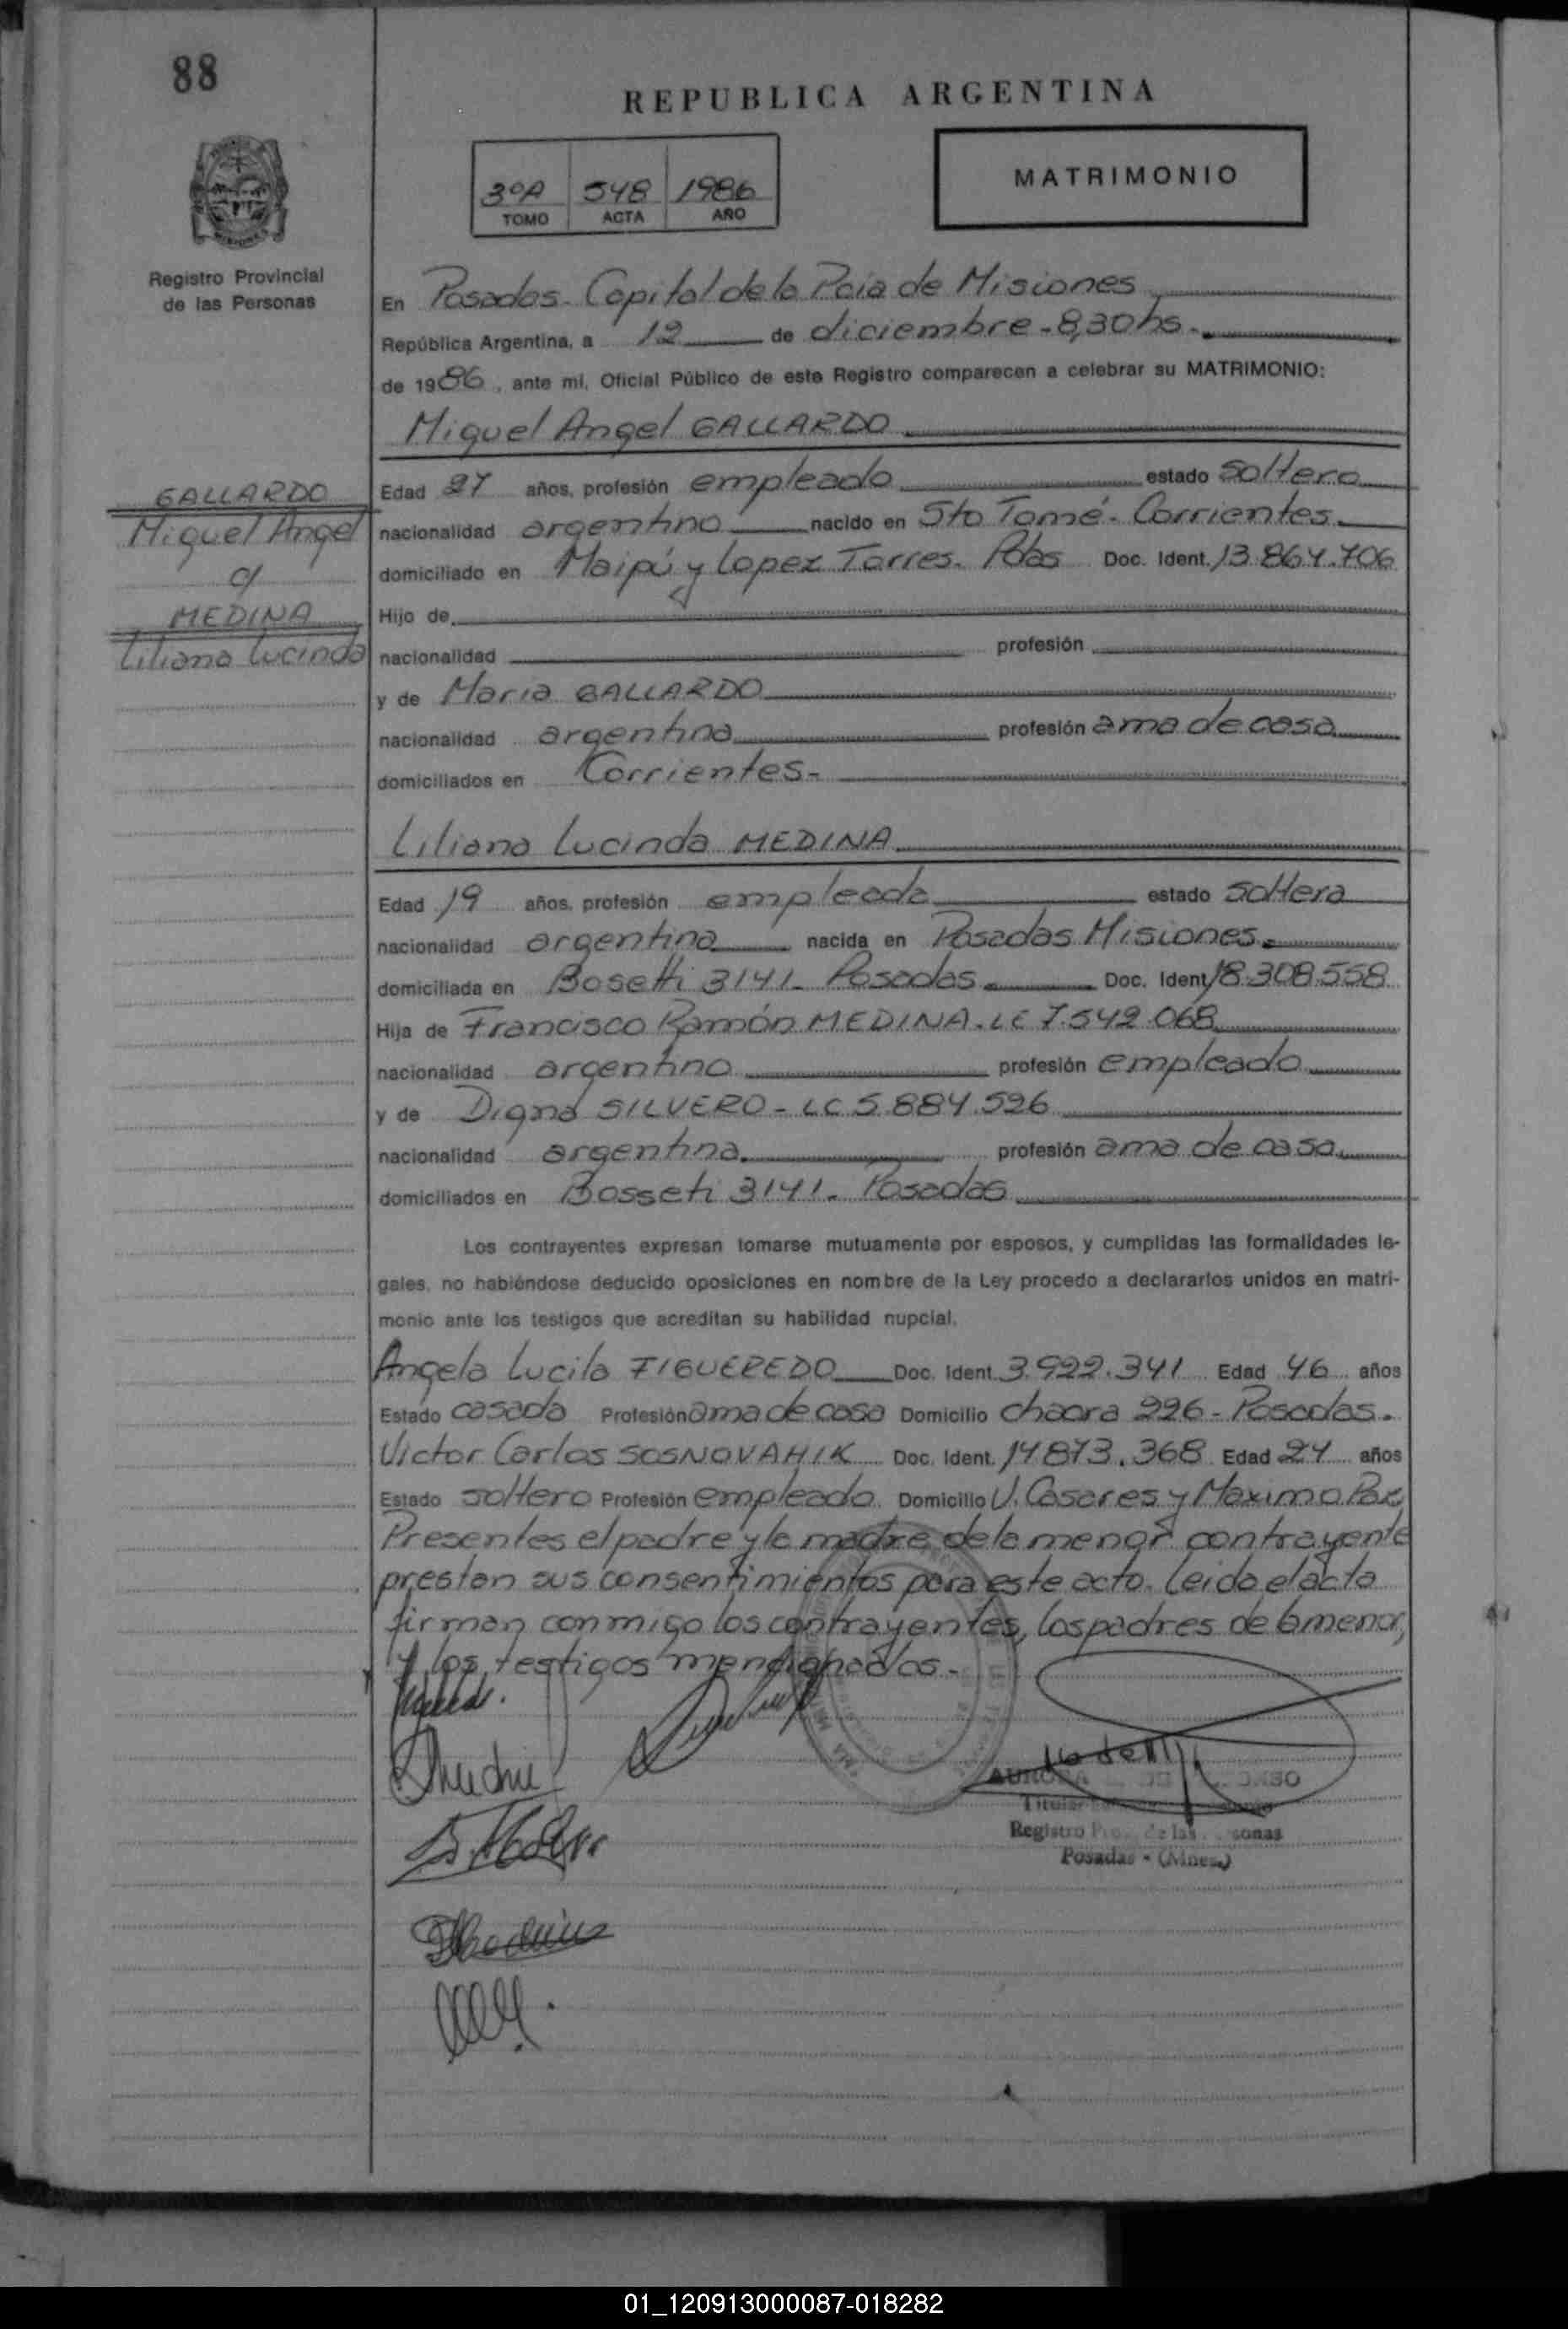 88
REPUBLICA ARGENTINA
3ºA 548 1986
TOMO ACTA AÑO
MATRIMONIO
Registro Provincial
de las Personas
En Posadas. Capital de la Pcia de Misiones
República Argentina, a 12 de diciembre - 8,30 hs.
de 1986, ante mí, Oficial Público de este Registro comparecen a celebrar su MATRIMONIO:
Miguel Angel GALLARDO
GALLARDO
Miguel Angel
c/
MEDINA
Liliana Lucinda
Edad 27 años, profesión empleado estado soltero
nacionalidad argentino nacido en Sto Tomé - Corrientes
domiciliado en Maipú y Lopez Torres. Pdas Doc. Ident. 13.864.706
Hijo de
nacionalidad profesión
y de Maria GALLARDO
nacionalidad argentina profesión ama de casa
domiciliados en Corrientes-
Liliana Lucinda MEDINA
Edad 19 años, profesión empleada estado soltera
nacionalidad argentina nacida en Posadas Misiones
domiciliada en Bosetti 3141. Posadas Doc. Ident. 18.308.558
Hija de Francisco Ramón MEDINA. LE 7.542.068
nacionalidad argentino profesión empleado
y de Digna SILVERO - LC 5.884.526
nacionalidad argentina profesión ama de casa
domiciliados en Bosseti 3141. Posadas
Los contrayentes expresan tomarse mutuamente por esposos, y cumplidas las formalidades le-
gales, no habiéndose deducido oposiciones en nombre de la Ley procedo a declararlos unidos en matri-
monio ante los testigos que acreditan su habilidad nupcial.
Angela Lucila FIGUEREDO Doc. Ident. 3.922.341 Edad 46 años
Estado casada Profesión ama de casa Domicilio chacra 226 - Posadas.
Victor Carlos SOSNOVAHIK Doc. Ident. 14873.368 Edad 24 años
Estado soltero Profesión empleado Domicilio V. Casares y Maximo Paz
Presentes el padre y la madre de la menor contrayente
prestan sus consentimientos para este acto. Leida el acta
firman conmigo los contrayentes, los padres de la menor,
y los testigos mencionados.
AURORA
Titular
Registro de las
Posadas - (Mnes.)
01_120913000087-018282